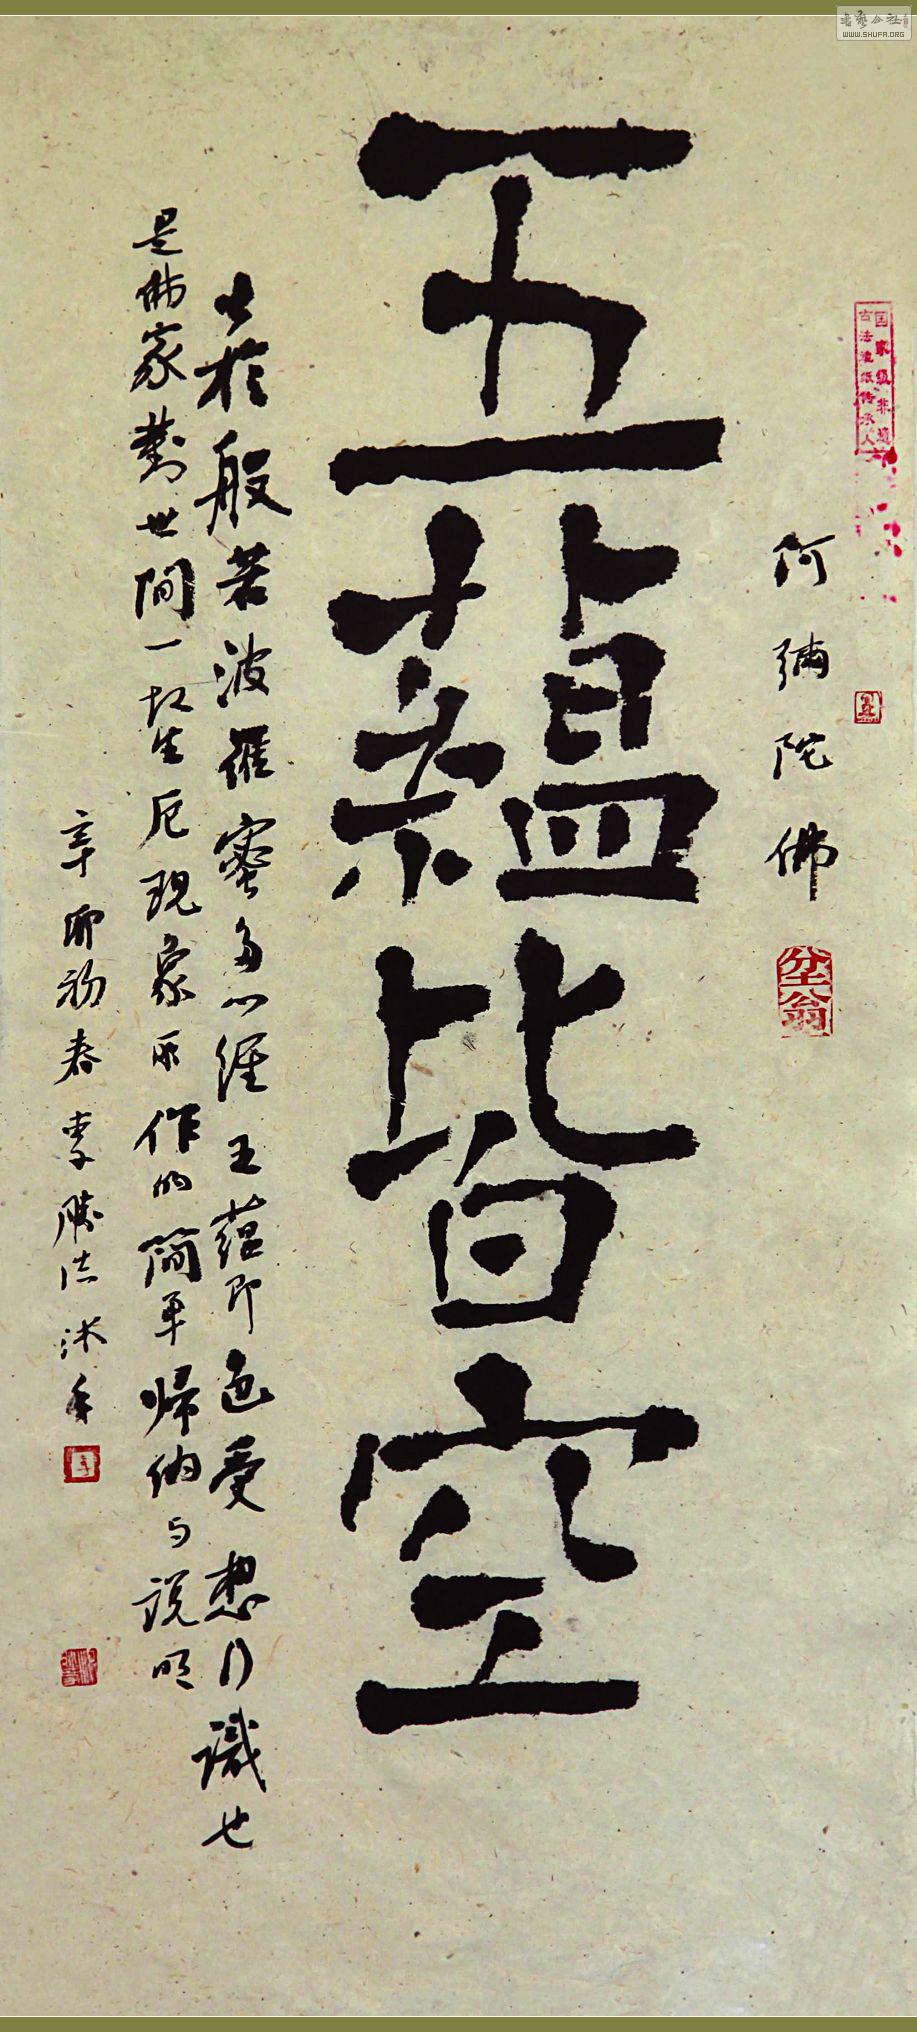 阿彌陀佛
五蘊皆空
出於般若波羅蜜多心經五蘊即色受想行識也
是佛家對世間一切生厄現象所作的简单歸納与説明
辛卯初春李勝洪沐手
国家级非遗
古法造纸传承人
坌翁
WWW.SHUFA.ORG